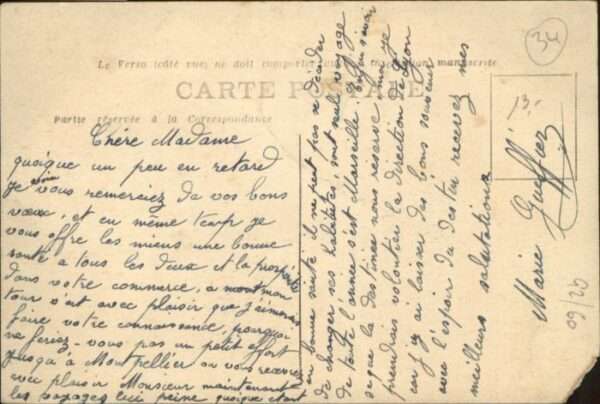 Le Verso (côté vue) ne doit comporter manuscrite
CARTE POSTALE
Partie réservée à la Correspondance
34
13.
Chère Madame
quoique un peu en retard
je vous remerciez de vos bons
vœux, et en même temp je
vous offre les miens une bonne
santé a tous les deux et la prospérité
dans votre commerce, a mon
tour s'est avec plaisir que j'aimerais
faire votre connaissence, pourquoi
ne feriez-vous pas un petit effort
jusqu'à Montpellier ou vous recevrez
avec plaisir Monsieur maintenant
les voyages lui peine quoique étant
en bonne santé il ne peut pas se décider
de changer ses habitutes, sont seul voyage
de toute l'année s'est Marseille. Enfin savoir
se que la destinée nous réserve moi je
prendrais volontier la direction de Lyon
car j'y ai laisser des bons souvenir
avec l'espoir du des tu recevez mes
meilleurs salutations
Marie
09/20